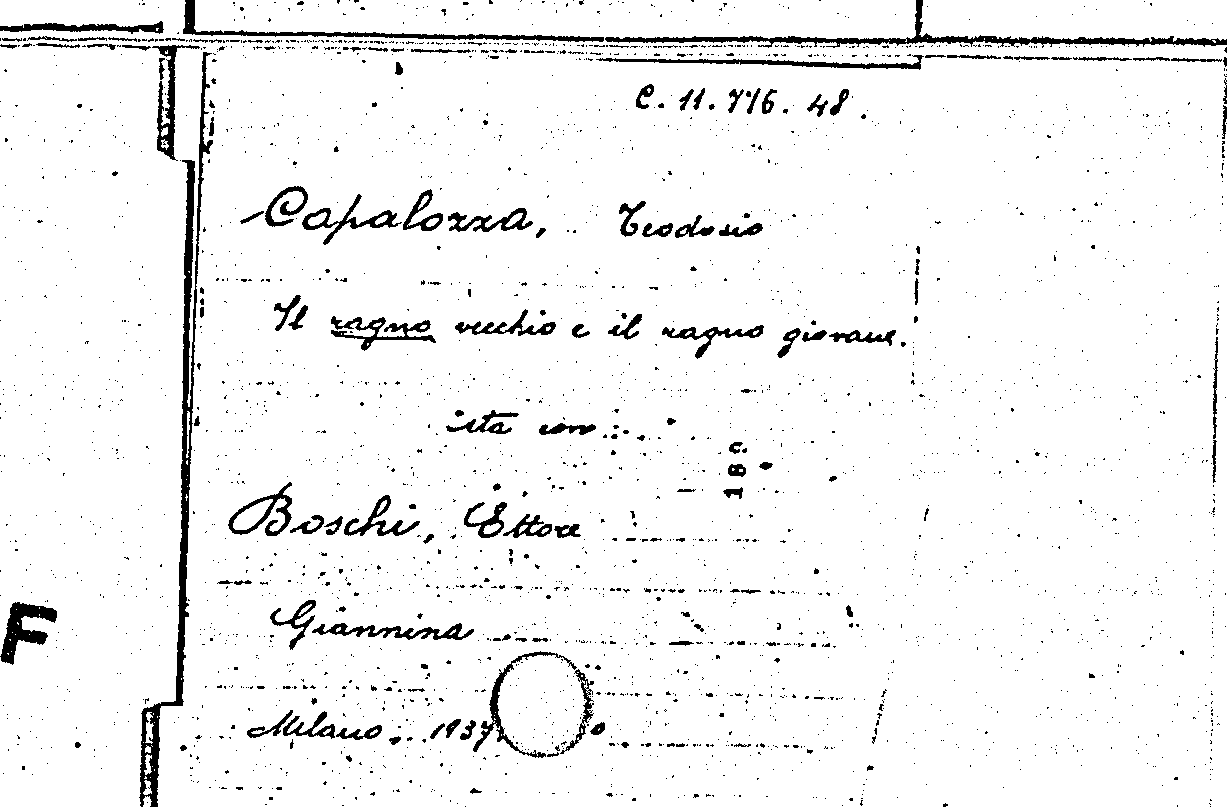 C. 11. 776. 48.
Capalozza, Teodosio
Il ragno vecchio e il ragno giovane.
sta con
Boschi, Ettore
18c.
Giannina
F
Milano, 1937